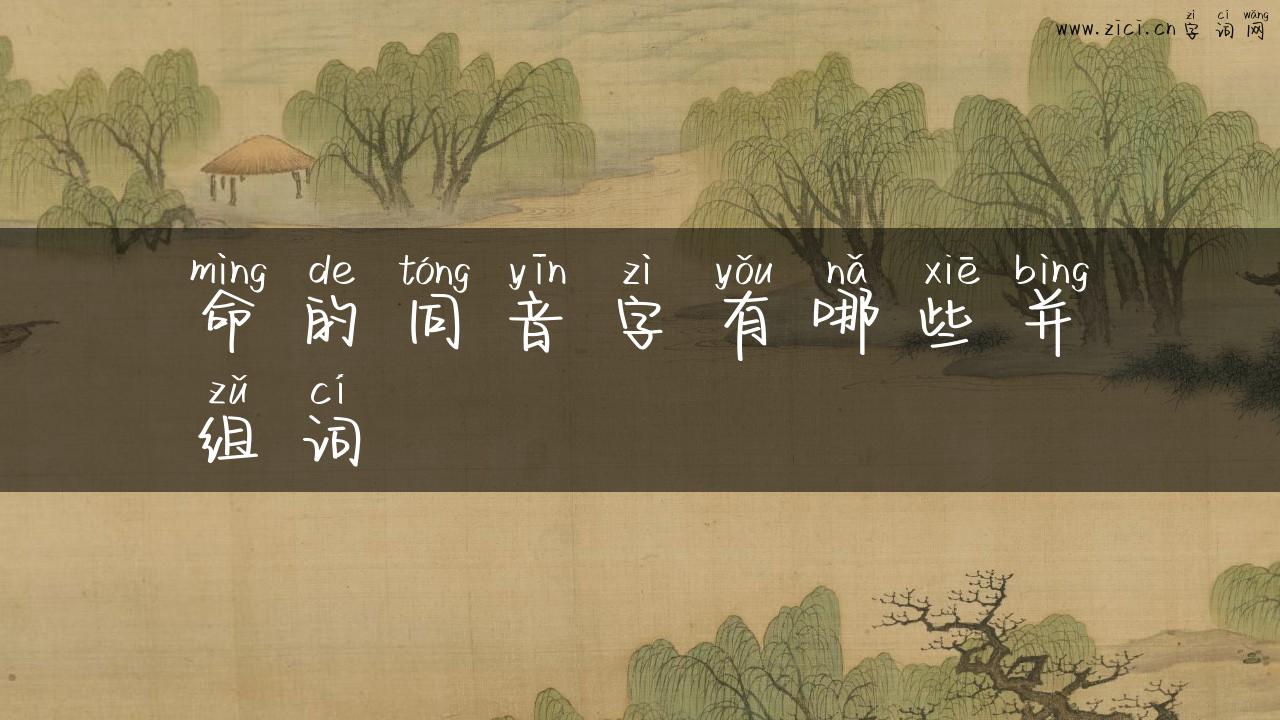 zì cí wǎng
www.zici.cn 字词网
mìng de tóng yīn zì yǒu nǎ xiē bìng
命的同音字有哪些并
zǔ cí
组词